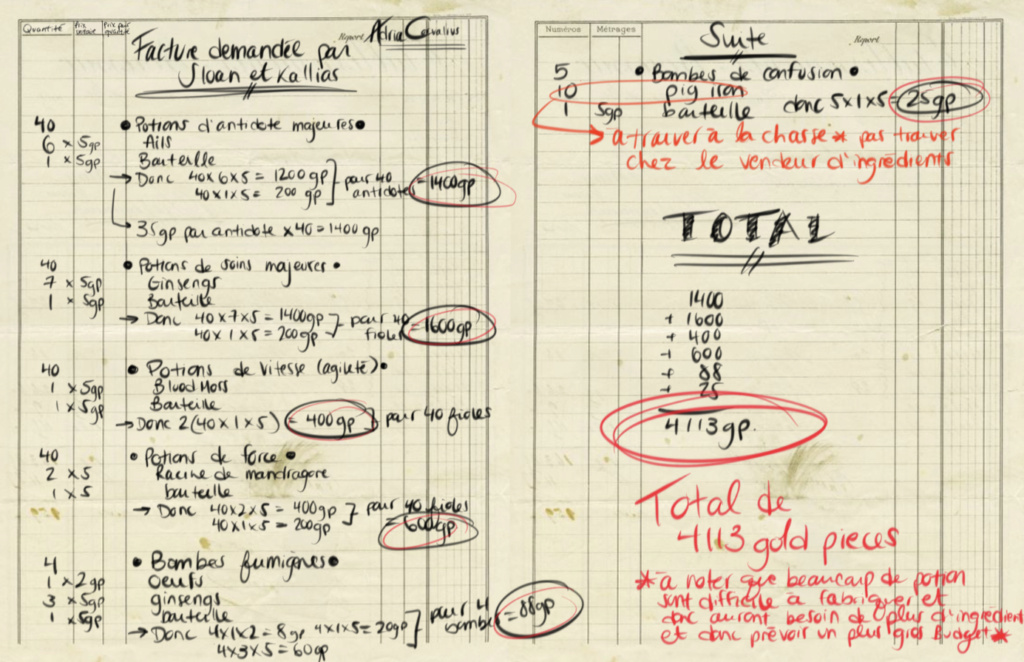 Quantité
Report
Adria Corvalius
Facture demandée par
Sloan et Kallias
40 • Potions d'antidote majeures •
6 x 5gp Ails
1 x 5gp Bouteille
→ Donc 40x6x5 = 1200gp
40x1x5 = 200gp
pour 40 antidotes = 1400gp
→ 35gp par antidote x 40 = 1400gp
40 • Potions de soins majeures •
7 x 5gp Ginsengs
1 x 5gp Bouteille
→ Donc 40x7x5 = 1400gp
40x1x5 = 200gp
pour 40 fioles = 1600gp
40 • Potions de vitesse (agileté) •
1 x 5gp Blood Moss
1 x 5gp Bouteille
→ Donc 2(40x1x5) = 400gp pour 40 fioles
40 • Potions de force •
2 x 5 Racine de mandragore
1 x 5 bouteille
→ Donc 40x2x5 = 400gp
40x1x5 = 200gp
pour 40 fioles
= 600gp
4 • Bombes fumignes •
1 x 2gp oeufs
3 x 5gp ginsengs
1 x 5gp bouteille
→ Donc 4x1x2 = 8gp 4x1x5 = 20gp
4x3x5 = 60gp
pour 4 bombes = 88gp
Numéros Métrages
Report
Suite
5 • Bombes de confusion •
10 pig iron
1 5gp bouteille donc 5x1x5 = 25gp
à trouver à la chasse * pas trouver
chez le vendeur d'ingrédients
TOTAL
1400
+ 1600
+ 400
+ 600
+ 88
+ 25
4113gp.
Total de
4113 gold pieces
* à noter que beaucoup de potion
sont difficile à fabriquer et
donc auront besoin de plus d'ingrédient
et donc prévoir un plus gros Budget *